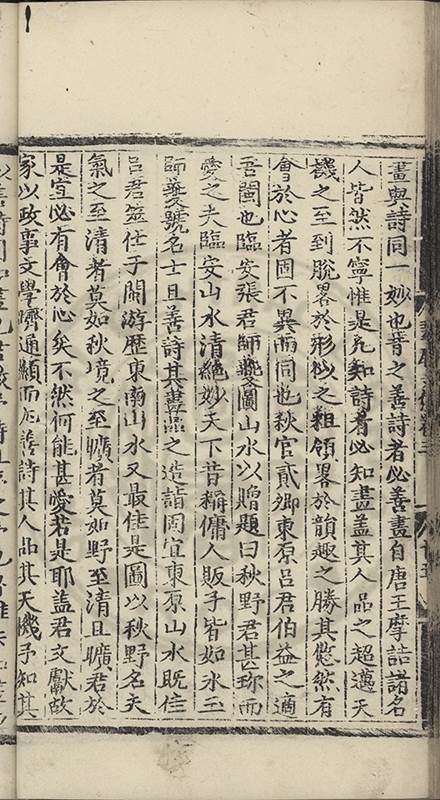 畫與詩同一妙也昔之善詩者必善畫自唐王摩詰諸名
人皆然不寧惟是凡知詩者必知畫盖其人品之超邁天
機之至到脫畧於形似之粗領畧於韻趣之勝其悠然有
會於心者固不異而同也秋官貳卿東原呂君伯益之適
吾閩也臨安張君師夔圖山水以贈題曰秋野君甚珎而
愛之夫臨安山水清絶妙天下昔稱傭人販子皆如氷玉
師夔號名士且善詩其畫品之造詣固宜東原山水既佳
呂君筮仕于閩游歷東南山水又最佳是圖以秋野名夫
氣之至清者莫如秋境之至曠者莫如野至清且曠君於
是宜必有會於心矣不然何能甚愛若是耶盖君文獻故
家以政事文學躋通顯而尤善詩其人品其天機予知其